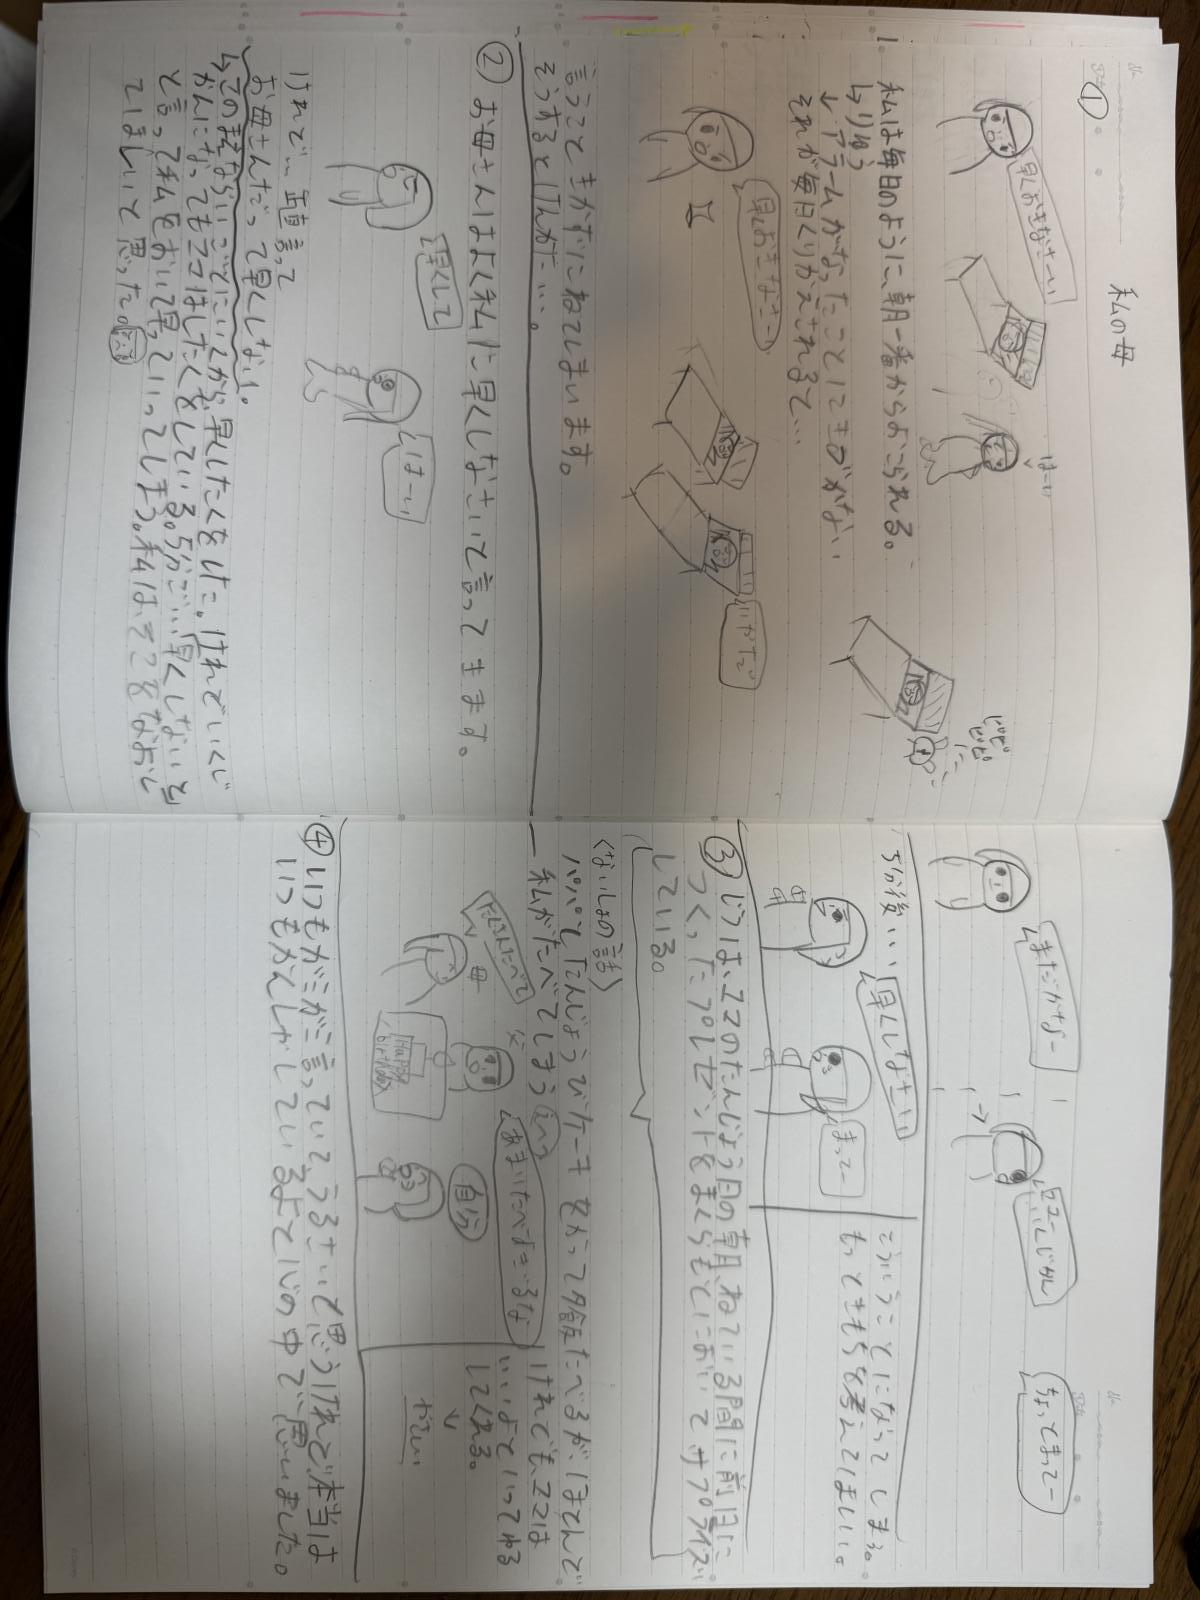 私の母
①
早くおきなさーい
はーい
ピピピピ
私は毎日のように、朝一番からおこられる。
↳りゆう
↓アラームがなったことにきづかない
それが毎日くりかえされるて…
早くおきなさーい
言うこときかずにねてしまいます。
そうすると「んがた…。
② お母さんはよく私に早くしなさいて言ってきます。
早くして
はーい
けれど… 正直言って
お母さんだって早くしない。
かんになってもママはしたくをしている。5分ごい…早くしないと
と言って私をおいて早っていってしまう。私はそこをなおし
てほしいと思った。
まだかなー
ちょっとまってー
5分後…
早くしなさい
まってー
こういうことになってしまう。
もっときもちを考えてほしい。
③ じつは、ママのたんじょう日の朝、ねている間に前日に
つくったプレゼントをまくらもとにおいてサプライズ
している。
(ないしょの話)
パパとたんじょうびケーキをかって夕飯たべるが、ほとんど
私がたべてしまう
たくさんたべて
母
父
Happy
birthday
あまりたべすぎるな
自分
けれどもママは
いいよといってゆる
してくれる。
↓
やさしい
④ いつもガミガミ言っていて、うるさいと思うけれど本当は
いつもかんしゃしているよと心の中で思いました。